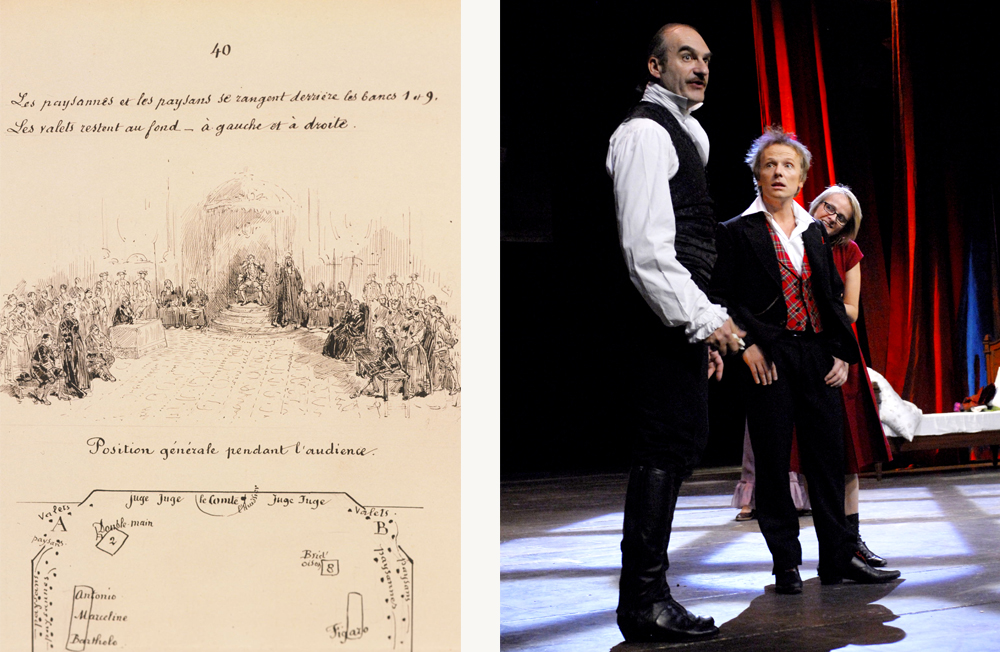 40
Les paysannes et les paysans se rangent derrière les bancs 1 et 9.
Les valets restent au fond — à gauche et à droite.
Position générale pendant l'audience.
juge Juge le Comte l'huissier Juge Juge
Valets
A
paysans
Double-main
2
Valets
B
Brid'
oison
8
paysannes
paysans
Antonio
Marceline
Bartholo
Figaro